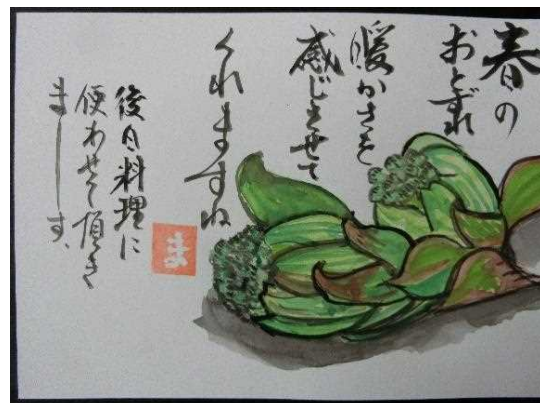 春の
おとずれ
暖かさを
感じさせて
くれますね
後日料理に
使わせて頂き
まーす、
ま